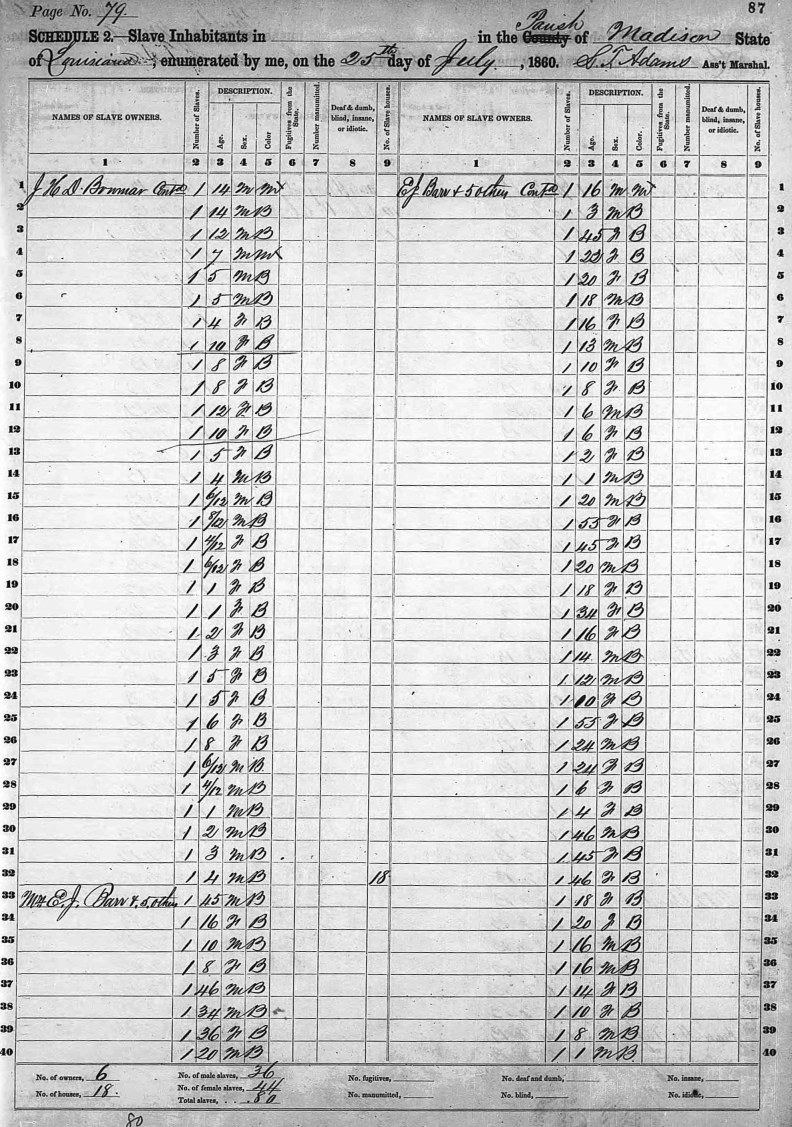 Page No. 79
87
SCHEDULE 2.—Slave Inhabitants in in the County Parish of Madison State
of Louisiana, enumerated by me, on the 25th day of July, 1860. S. T. Adams Ass't Marshal.
NAMES OF SLAVE OWNERS. Number of Slaves. DESCRIPTION. Age. Sex. Color Fugitives from the State. Number manumitted. Deaf & dumb, blind, insane, or idiotic. No. of Slave houses. NAMES OF SLAVE OWNERS. Number of Slaves. DESCRIPTION. Age. Sex. Color. Fugitives from the State. Number manumitted. Deaf & dumb, blind, insane, or idiotic. No. of Slave houses.
1 2 3 4 5 6 7 8 9 1 2 3 4 5 6 7 8 9
1 J H D Bowmar Contd 1 14 M M E J Barr & 5 others Contd 1 16 M M 1
2 1 14 M B 1 3 M B 2
3 1 12 M B 1 45 F B 3
4 1 7 M M 1 22 F B 4
5 1 5 M B 1 20 F B 5
6 1 5 M B 1 18 M B 6
7 1 4 F B 1 16 F B 7
8 1 10 F B 1 13 M B 8
9 1 8 F B 1 10 F B 9
10 1 8 F B 1 8 F B 10
11 1 12 F B 1 6 M B 11
12 1 10 F B 1 6 F B 12
13 1 5 F B 1 2 F B 13
14 1 4 M B 1 1 M B 14
15 1 6/12 M B 1 20 M B 15
16 1 8/12 M B 1 55 F B 16
17 1 4/12 F B 1 45 F B 17
18 1 6/12 F B 1 20 M B 18
19 1 1 F B 1 18 F B 19
20 1 1 F B 1 34 F B 20
21 1 2 F B 1 16 F B 21
22 1 3 F B 1 14 M B 22
23 1 5 F B 1 12 M B 23
24 1 5 F B 1 10 F B 24
25 1 6 F B 1 55 F B 25
26 1 8 F B 1 24 M B 26
27 1 6/12 M B 1 24 F B 27
28 1 4/12 M B 1 6 F B 28
29 1 1 M B 1 4 F B 29
30 1 2 M B 1 46 M B 30
31 1 3 M B 1 45 F B 31
32 1 4 M B 18 1 46 F B 32
33 E. J. Barr & 5 others 1 45 M B 1 18 F B 33
34 1 16 F B 1 20 F B 34
35 1 10 M B 1 16 M B 35
36 1 8 F B 1 16 M B 36
37 1 46 M B 1 14 F B 37
38 1 34 M B 1 10 F B 38
39 1 36 F B 1 8 M B 39
40 1 20 M B 1 1 M B 40
No. of owners, 6 No. of male slaves, 36 No. fugitives, No. deaf and dumb, No. insane,
No. of houses, 18. No. of female slaves, 44 No. manumitted, No. blind, No. idiotic,
Total slaves, 80
80